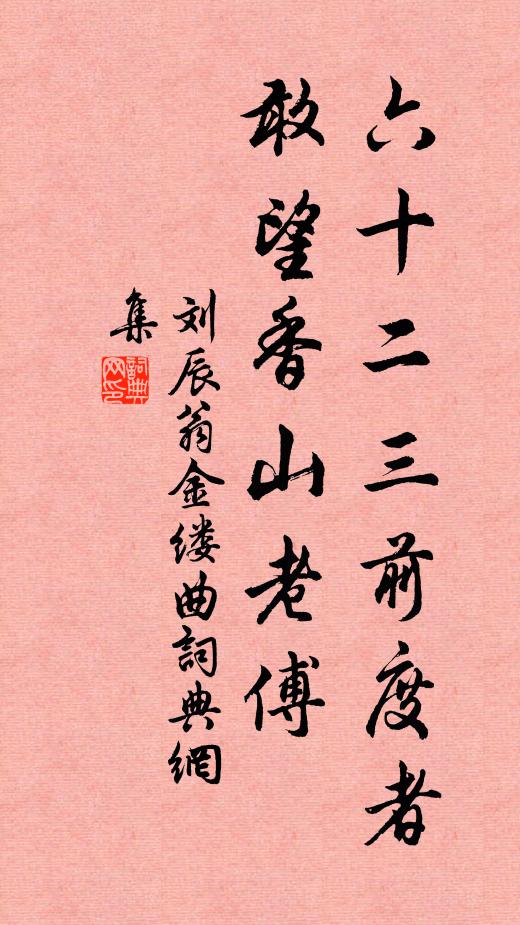 六十二三前度者
敢望香山老傅
刘辰翁金缕曲詞典網
集
詞典
网印